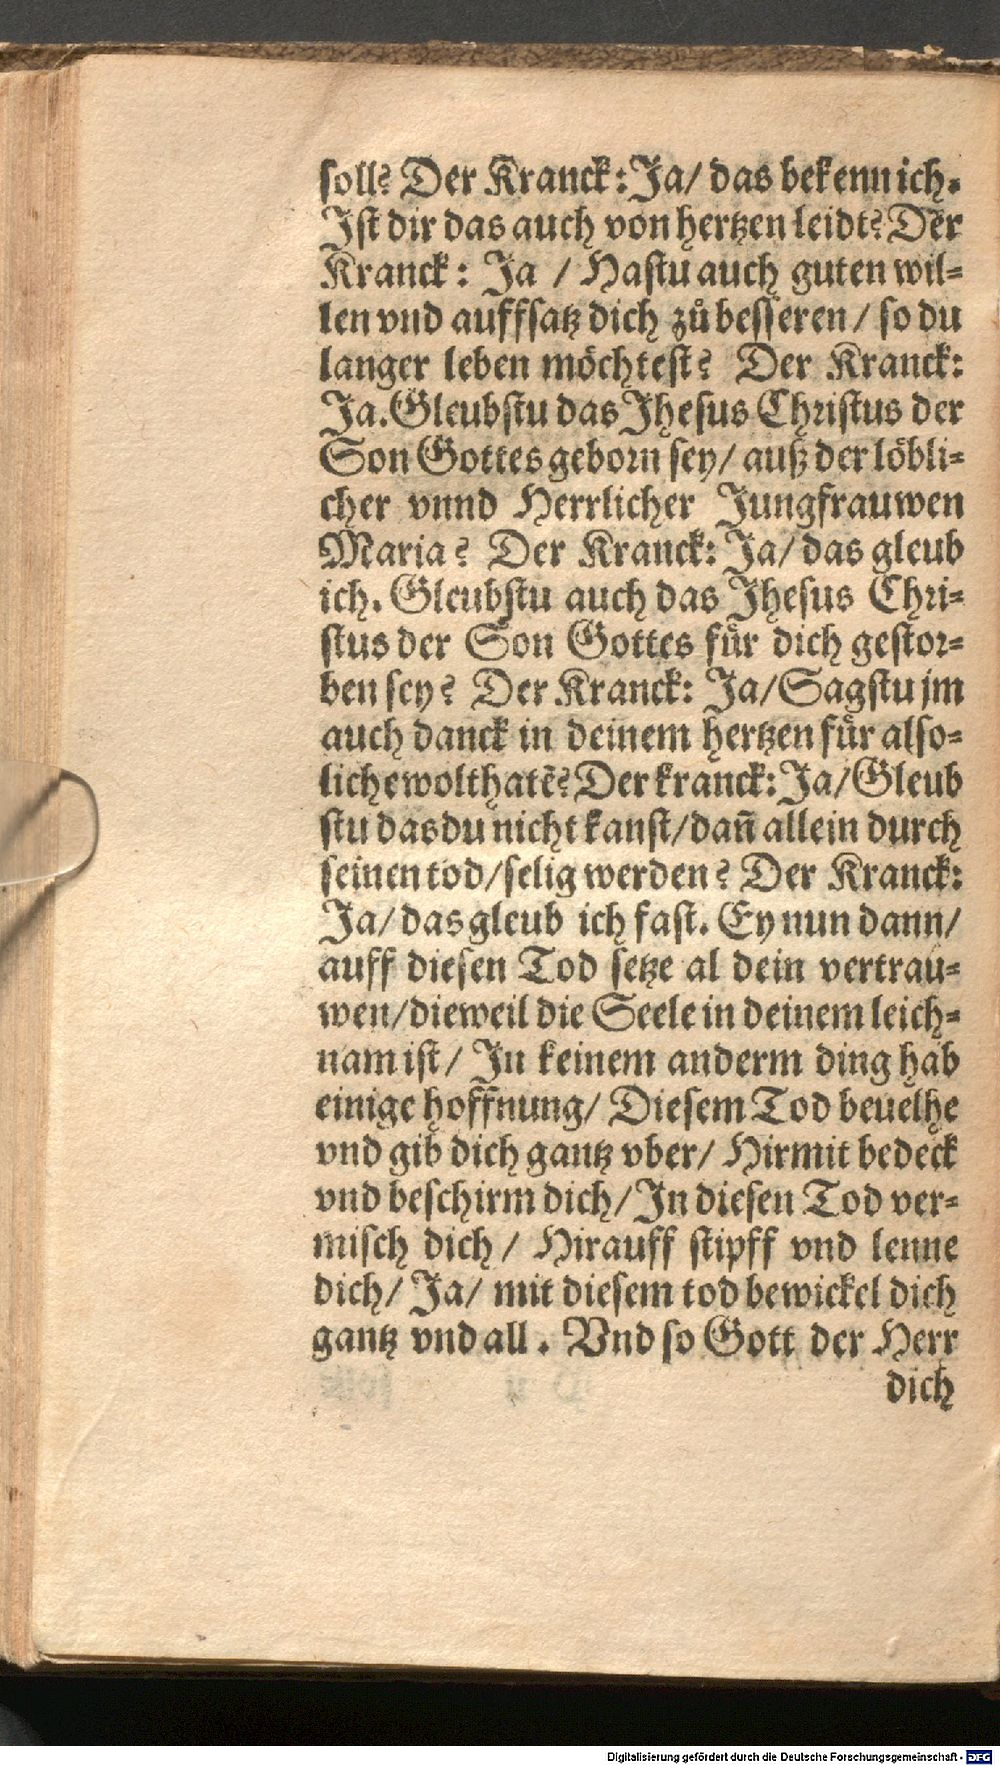 soll? Der Kranck: Ja/ das bekenn ich.
Ist dir das auch von hertzen leidt? Der
Kranck: Ja / Hastu auch guten wil-
len vnd auffsatz dich zů besseren/ so du
langer leben möchtest? Der Kranck:
Ja. Gleubstu das Jhesus Christus der
Son Gottes geborn sey/ auß der löbli-
cher vnnd Herrlicher Jungfrauwen
Maria? Der Kranck: Ja/ das gleub
ich. Gleubstu auch das Jhesus Chri-
stus der Son Gottes für dich gestor-
ben sey? Der Kranck: Ja/ Sagstu jm
auch danck in deinem hertzen für also-
liche wolthatē? Der kranck: Ja/ Gleub
stu das du nicht kanst/ dañ allein durch
seinen tod/ selig werden? Der Kranck:
Ja/ das gleub ich fast. Ey nun dann/
auff diesen Tod setze al dein vertrau-
wen/ dieweil die Seele in deinem leich-
nam ist/ In keinem anderm ding hab
einige hoffnung/ Diesem Tod beuelhe
vnd gib dich gantz vber/ Hirmit bedeck
vnd beschirm dich/ In diesen Tod ver-
misch dich/ Hirauff stipff vnd lenne
dich/ Ja/ mit diesem tod bewickel dich
gantz vnd all. Vnd so Gott der Herr
dich
Digitalisierung gefördert durch die Deutsche Forschungsgemeinschaft - DFG